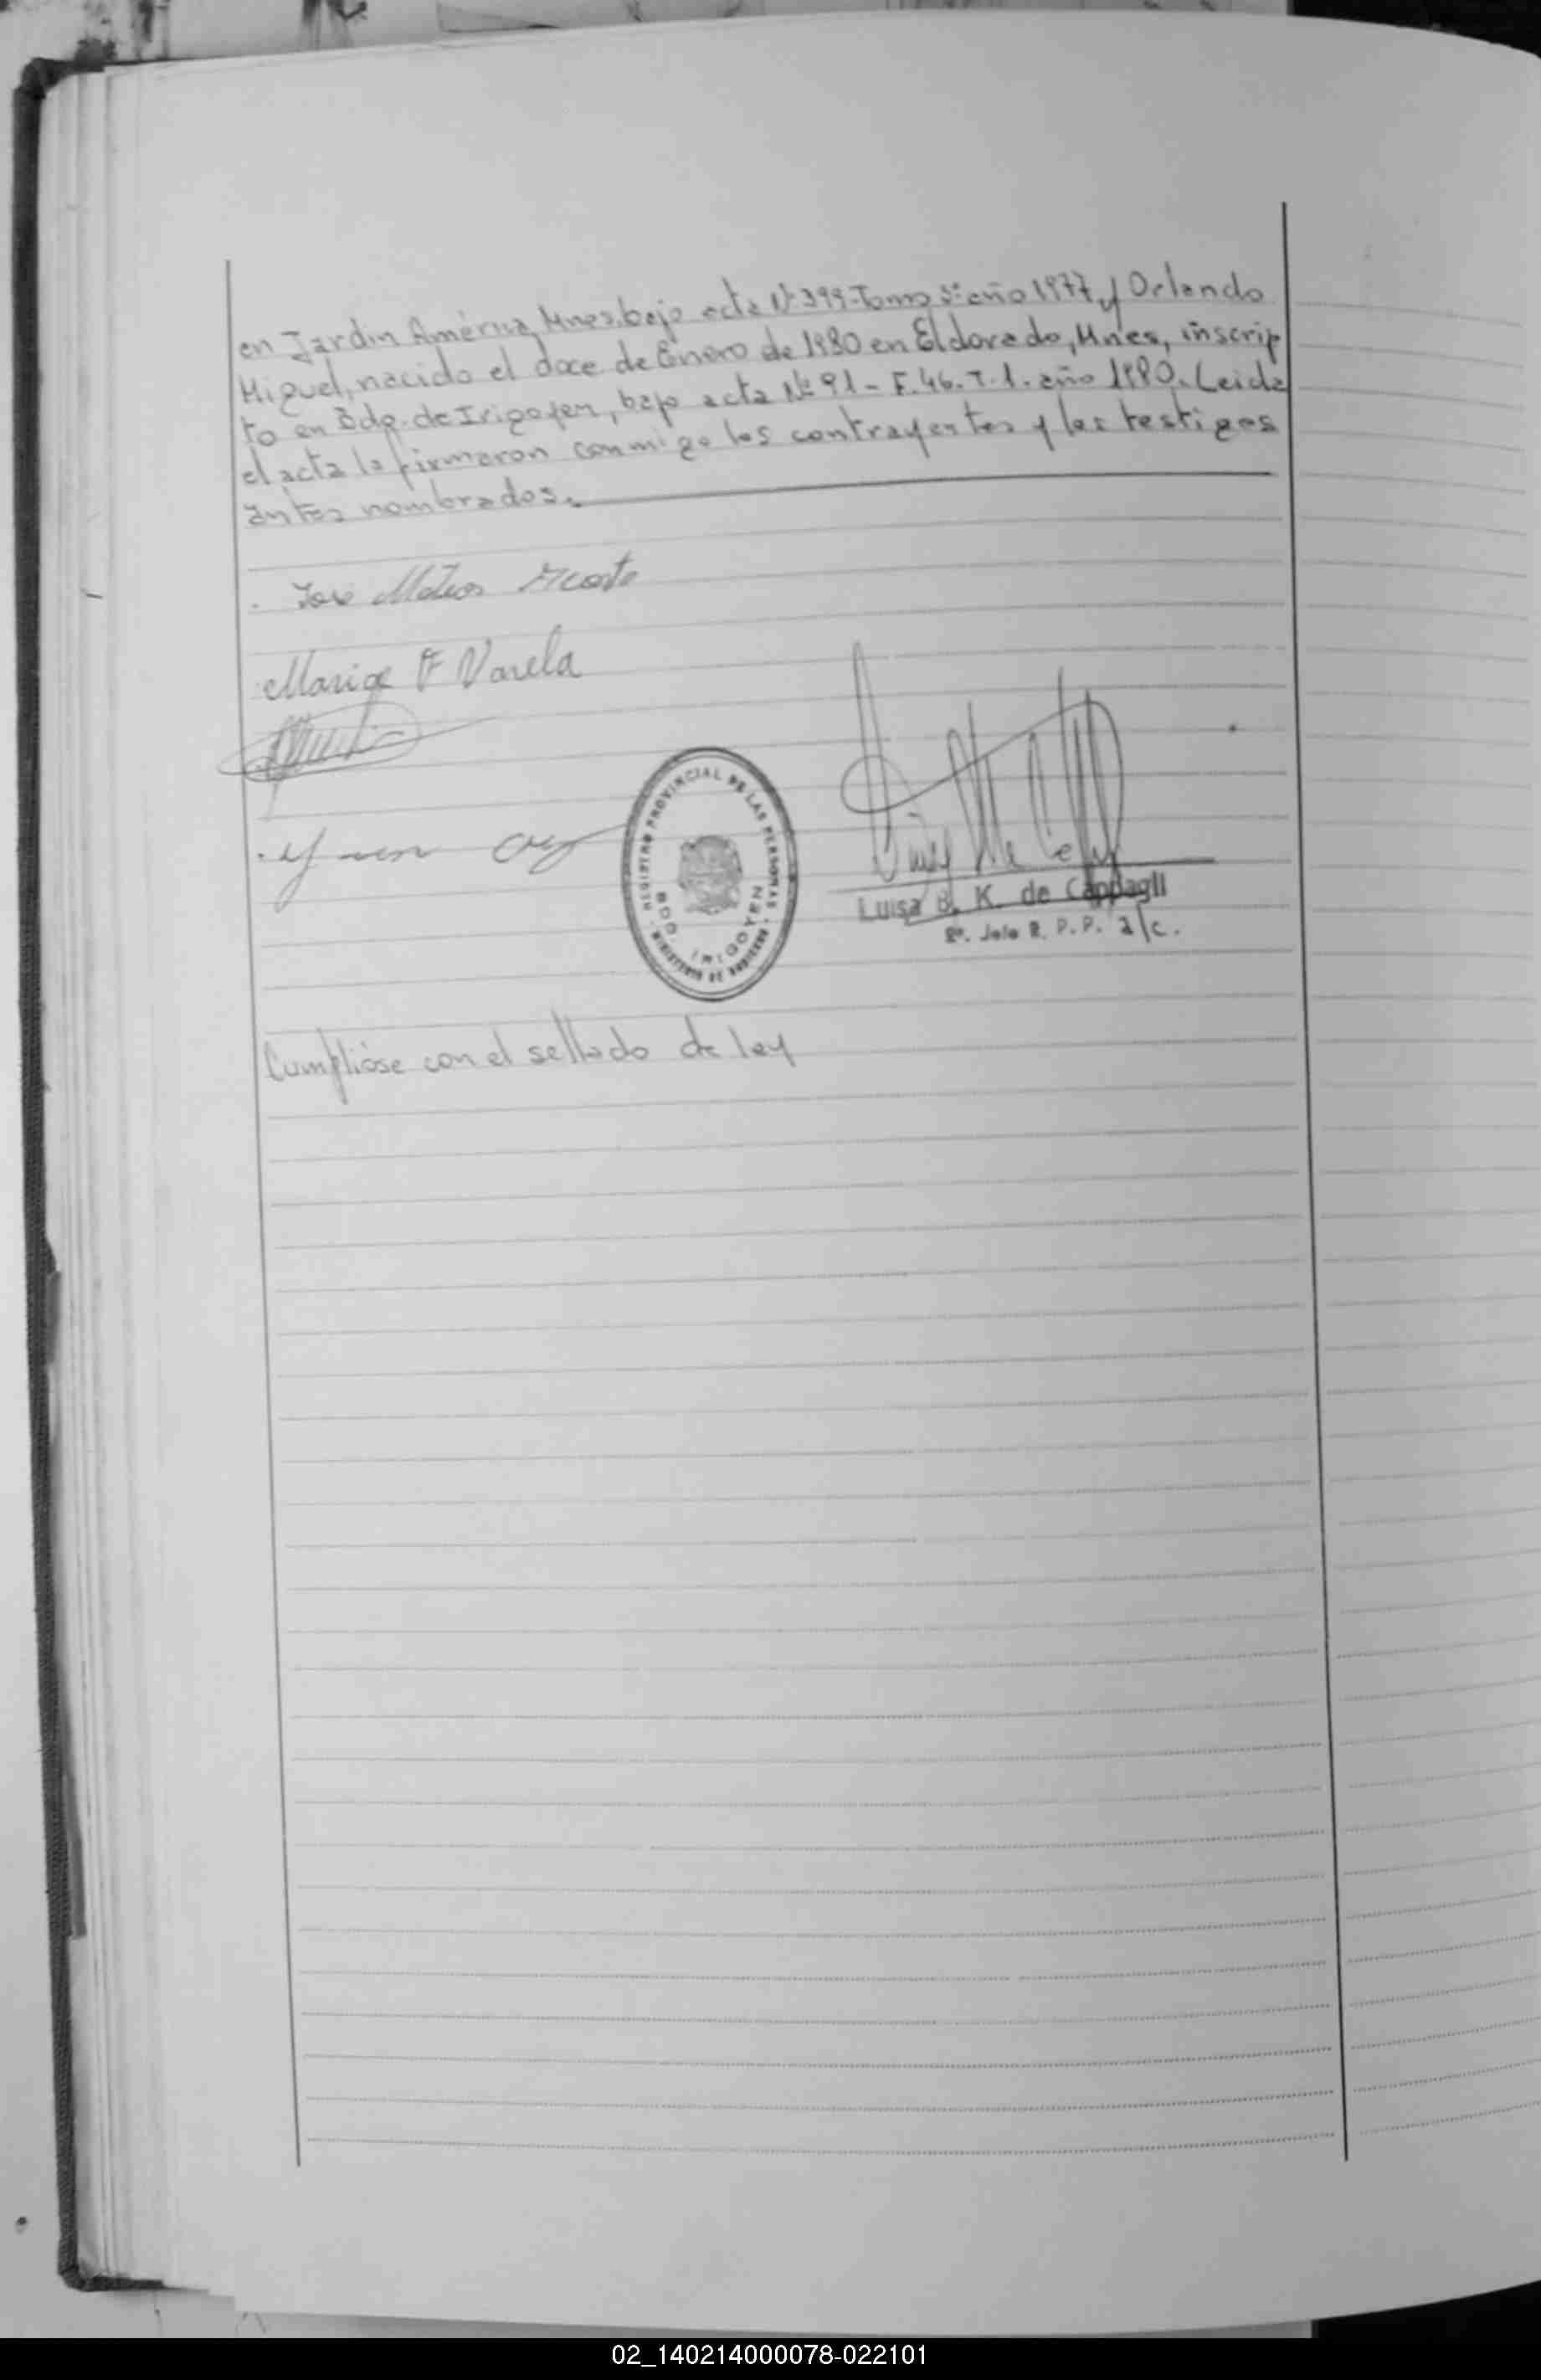 en Jardin América, Mnes, bajo acta Nº 399-Tomo 3º año 1977 y Orlando
Miguel, nacido el doce de Enero de 1980 en Eldorado, Mnes, inscrip
to en Bdo. de Irigoyen, bajo acta Nº 91 - F. 46. T. 1. año 1980. Leida
el acta la firmaron conmigo los contrayentes y los testigos
antes nombrados.
Jose Mateos Acosta
Maria F Varela
REGISTRO PROVINCIAL DE LAS PERSONAS
BDO. IRIGOYEN
MINISTERIO DE GOBIERNO
Luisa B. K. de Cappagli
2º. Jefe R. P. P. a/c.
Cumplióse con el sellado de ley
02_140214000078-022101